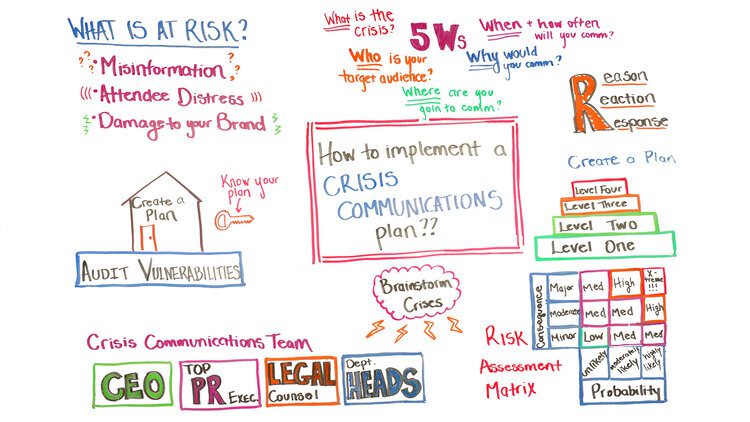 WHAT IS AT RISK?
??
• Misinformation
??
((( • Attendee Distress )))
• Damage to your Brand
What is the
Crisis?
5 Ws
When + how often
will you comm.?
Who is your
target audience?
Why would
you comm.?
Where are you
goin to comm.?
Reason
Reaction
Response
How to implement a
CRISIS
COMMUNICATIONS
plan??
Create a
Plan
AUDIT VULNERABILITIES
Know your
plan
Create a Plan
Level Four
Level Three
Level Two
Level One
Brainstorm
Crises
Crisis Communications Team
CEO
TOP
PR Exec.
LEGAL
Counsel
Dept.
HEADS
Risk
Assessment
Matrix
Consequence
Major Med High X-treme !!!
Moderate Med Med High
Minor Low Med Med
unlikely moderately likely highly likely
Probability